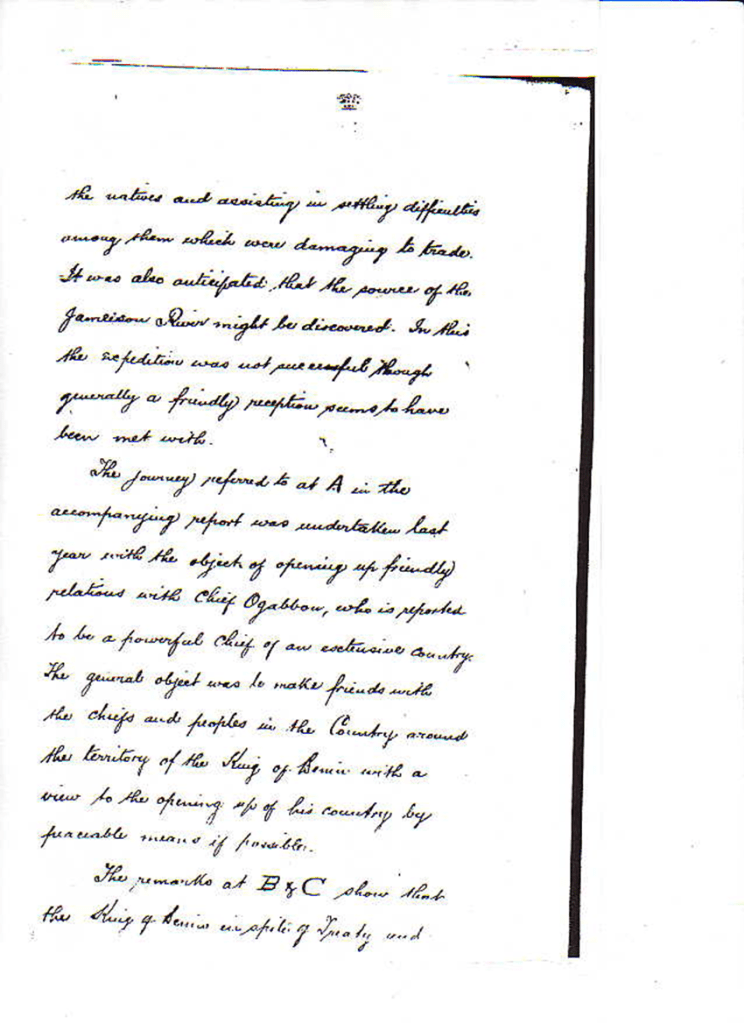 the natives and assisting in settling difficulties
among them which were damaging to trade.
It was also anticipated that the source of the
Jameison River might be discovered. In this
the expedition was not successful though
generally a friendly reception seems to have
been met with.
The journey referred to at A in the
accompanying report was undertaken last
year with the object of opening up friendly
relations with Chief Ogabbou, who is reported
to be a powerful Chief of an extensive country.
The general object was to make friends with
the chiefs and peoples in the Country around
the territory of the King of Benin with a
view to the opening up of his country by
peaceable means if possible.
The remarks at B & C show that
the King of Benin in spite of Treaty and